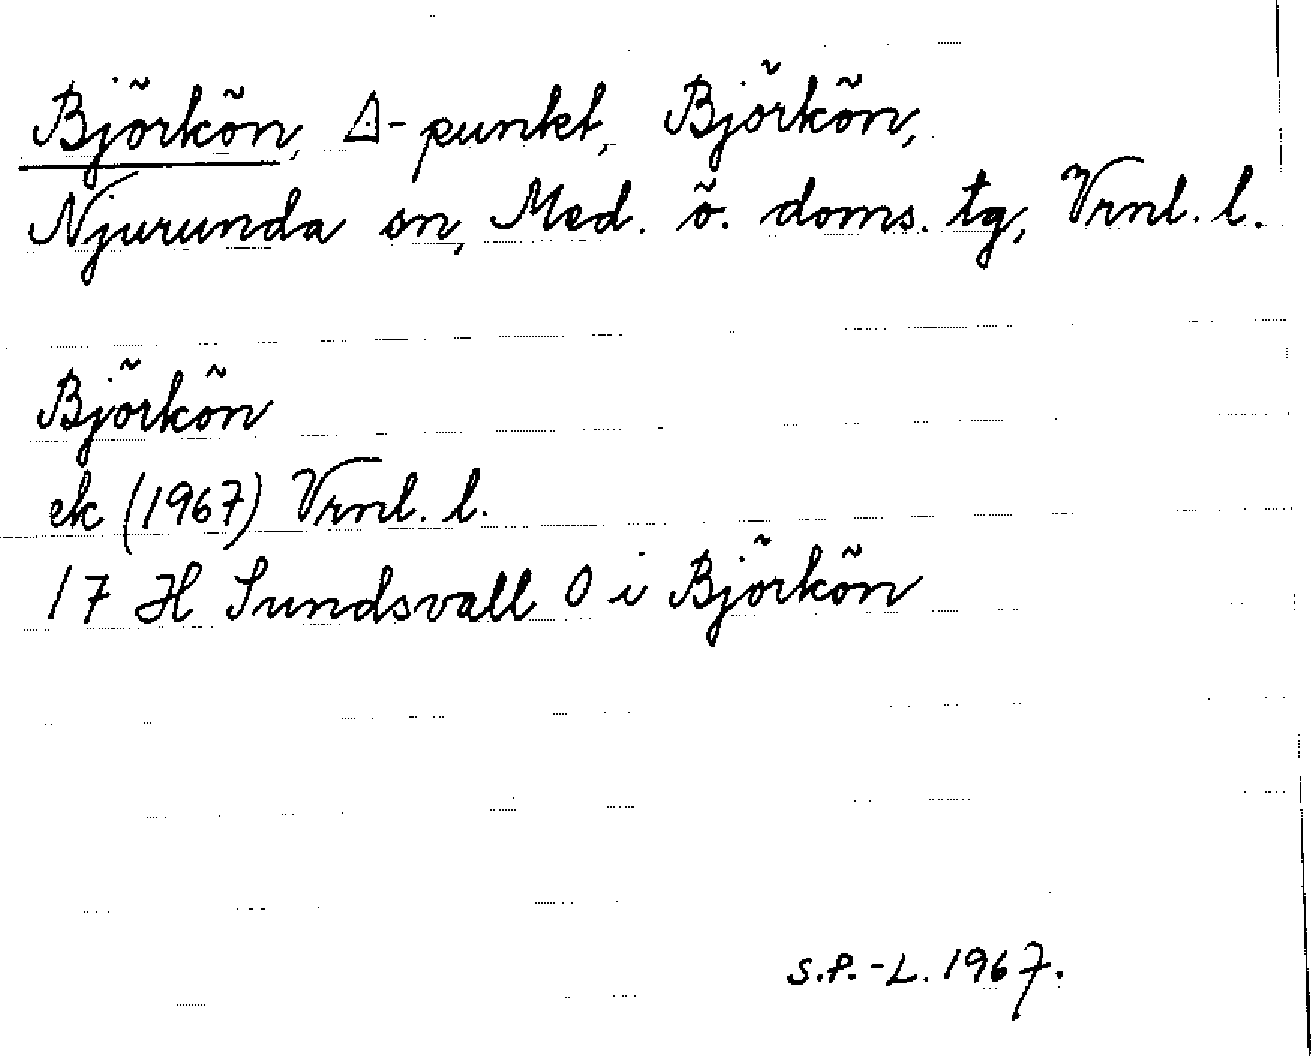 Björkön, △-punkt, Björkön,
Njurunda sn, Med. ö. doms. tg, Vrnl. l.
Björkön
ek (1967) Vrnl. l.
17 H Sundsvall O i Björkön
S.P.-L. 1967.